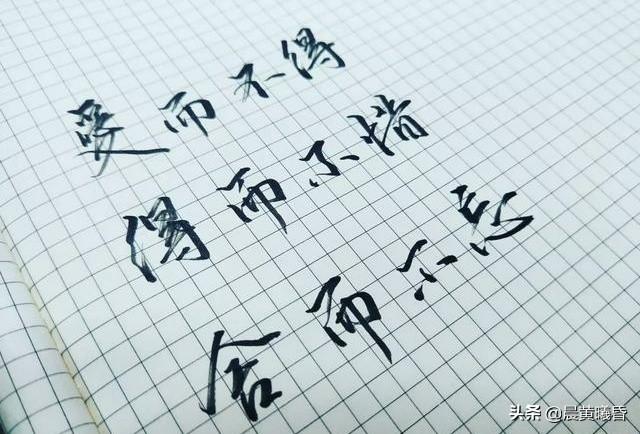 爱而不得
得而不惜
舍而不忍
头条 @晨黄曦昏